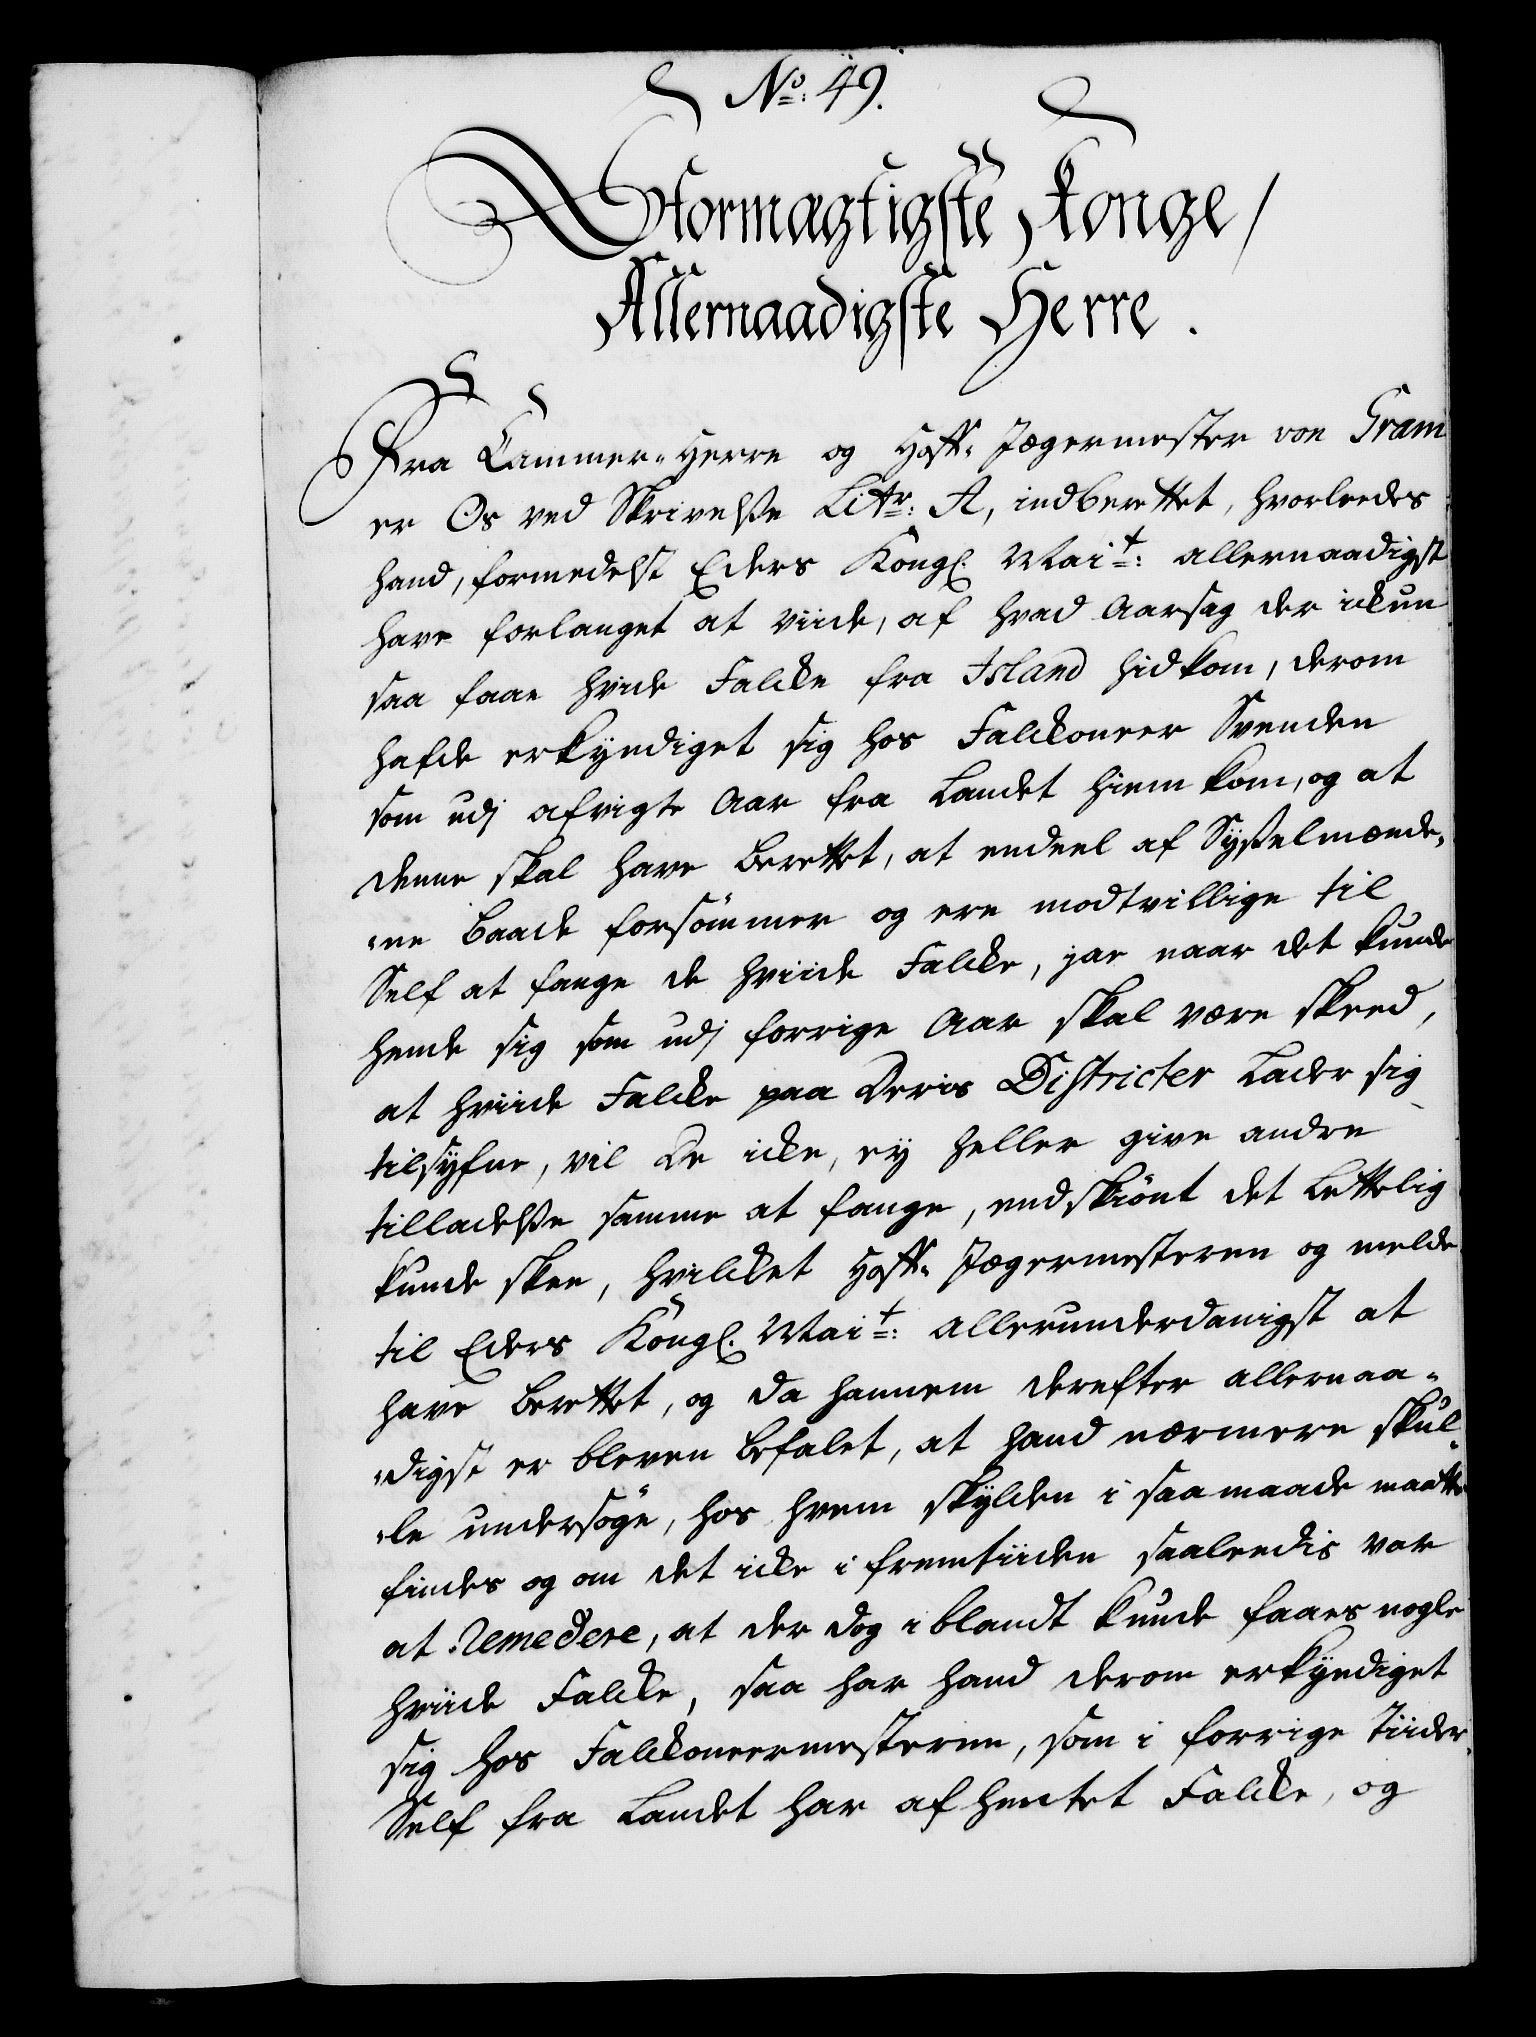 No: 49.
Stormægtigste Konge/
Allernaadigste Herre.
Fra Cammer-Herre og Hoff-Jægermester von Gram
er Os ved Skrivelse Litr: A, indberettet, hvorledes
hand, formedelst Eders Kongl. Mait: allernaadigst
have forlanget at viide, af hvad Aarsag der ickun
saa faae hvide Falcke fra Island hidkom, derom
hafde erkyndiget sig hos Falckoneer Svenden
som udj afvigte Aar fra Landet hiem kom, og at
denne skal have berettet, at endeel af Sysselmænde-
-ne baade forsömmer og ere modtvillige til
Self at fange de hviide Falcke, jae naar det kunde
hende sig som udj forrige Aar skal være skeed,
at hviide Falcke paa Deris Districter Lader sig
tilsyfne, vil De icke, ey heller give andre
tilladelse samme at fange, endskiönt det Lettelig
kunde skee, hvilcket Hoff-Jægermesteren og melde
til Eders Kongl. Mait: allerunderdanigst at
have berettet, og da hannem derefter allernaa-
-digst er bleven befalet, at hand nærmere skul-
-le undersöge, hos hvem skylden i saamaade maatte
findes og om det icke i fremtiiden saaleedis var
at Remedere, at der dog iblandt kunde faaes nogle
hviide Falcke, saa har hand derom erkyndiget
sig hos Falckoneermesterne, som i forrige Tiider
Self fra Landet har afhentet Falcke, og